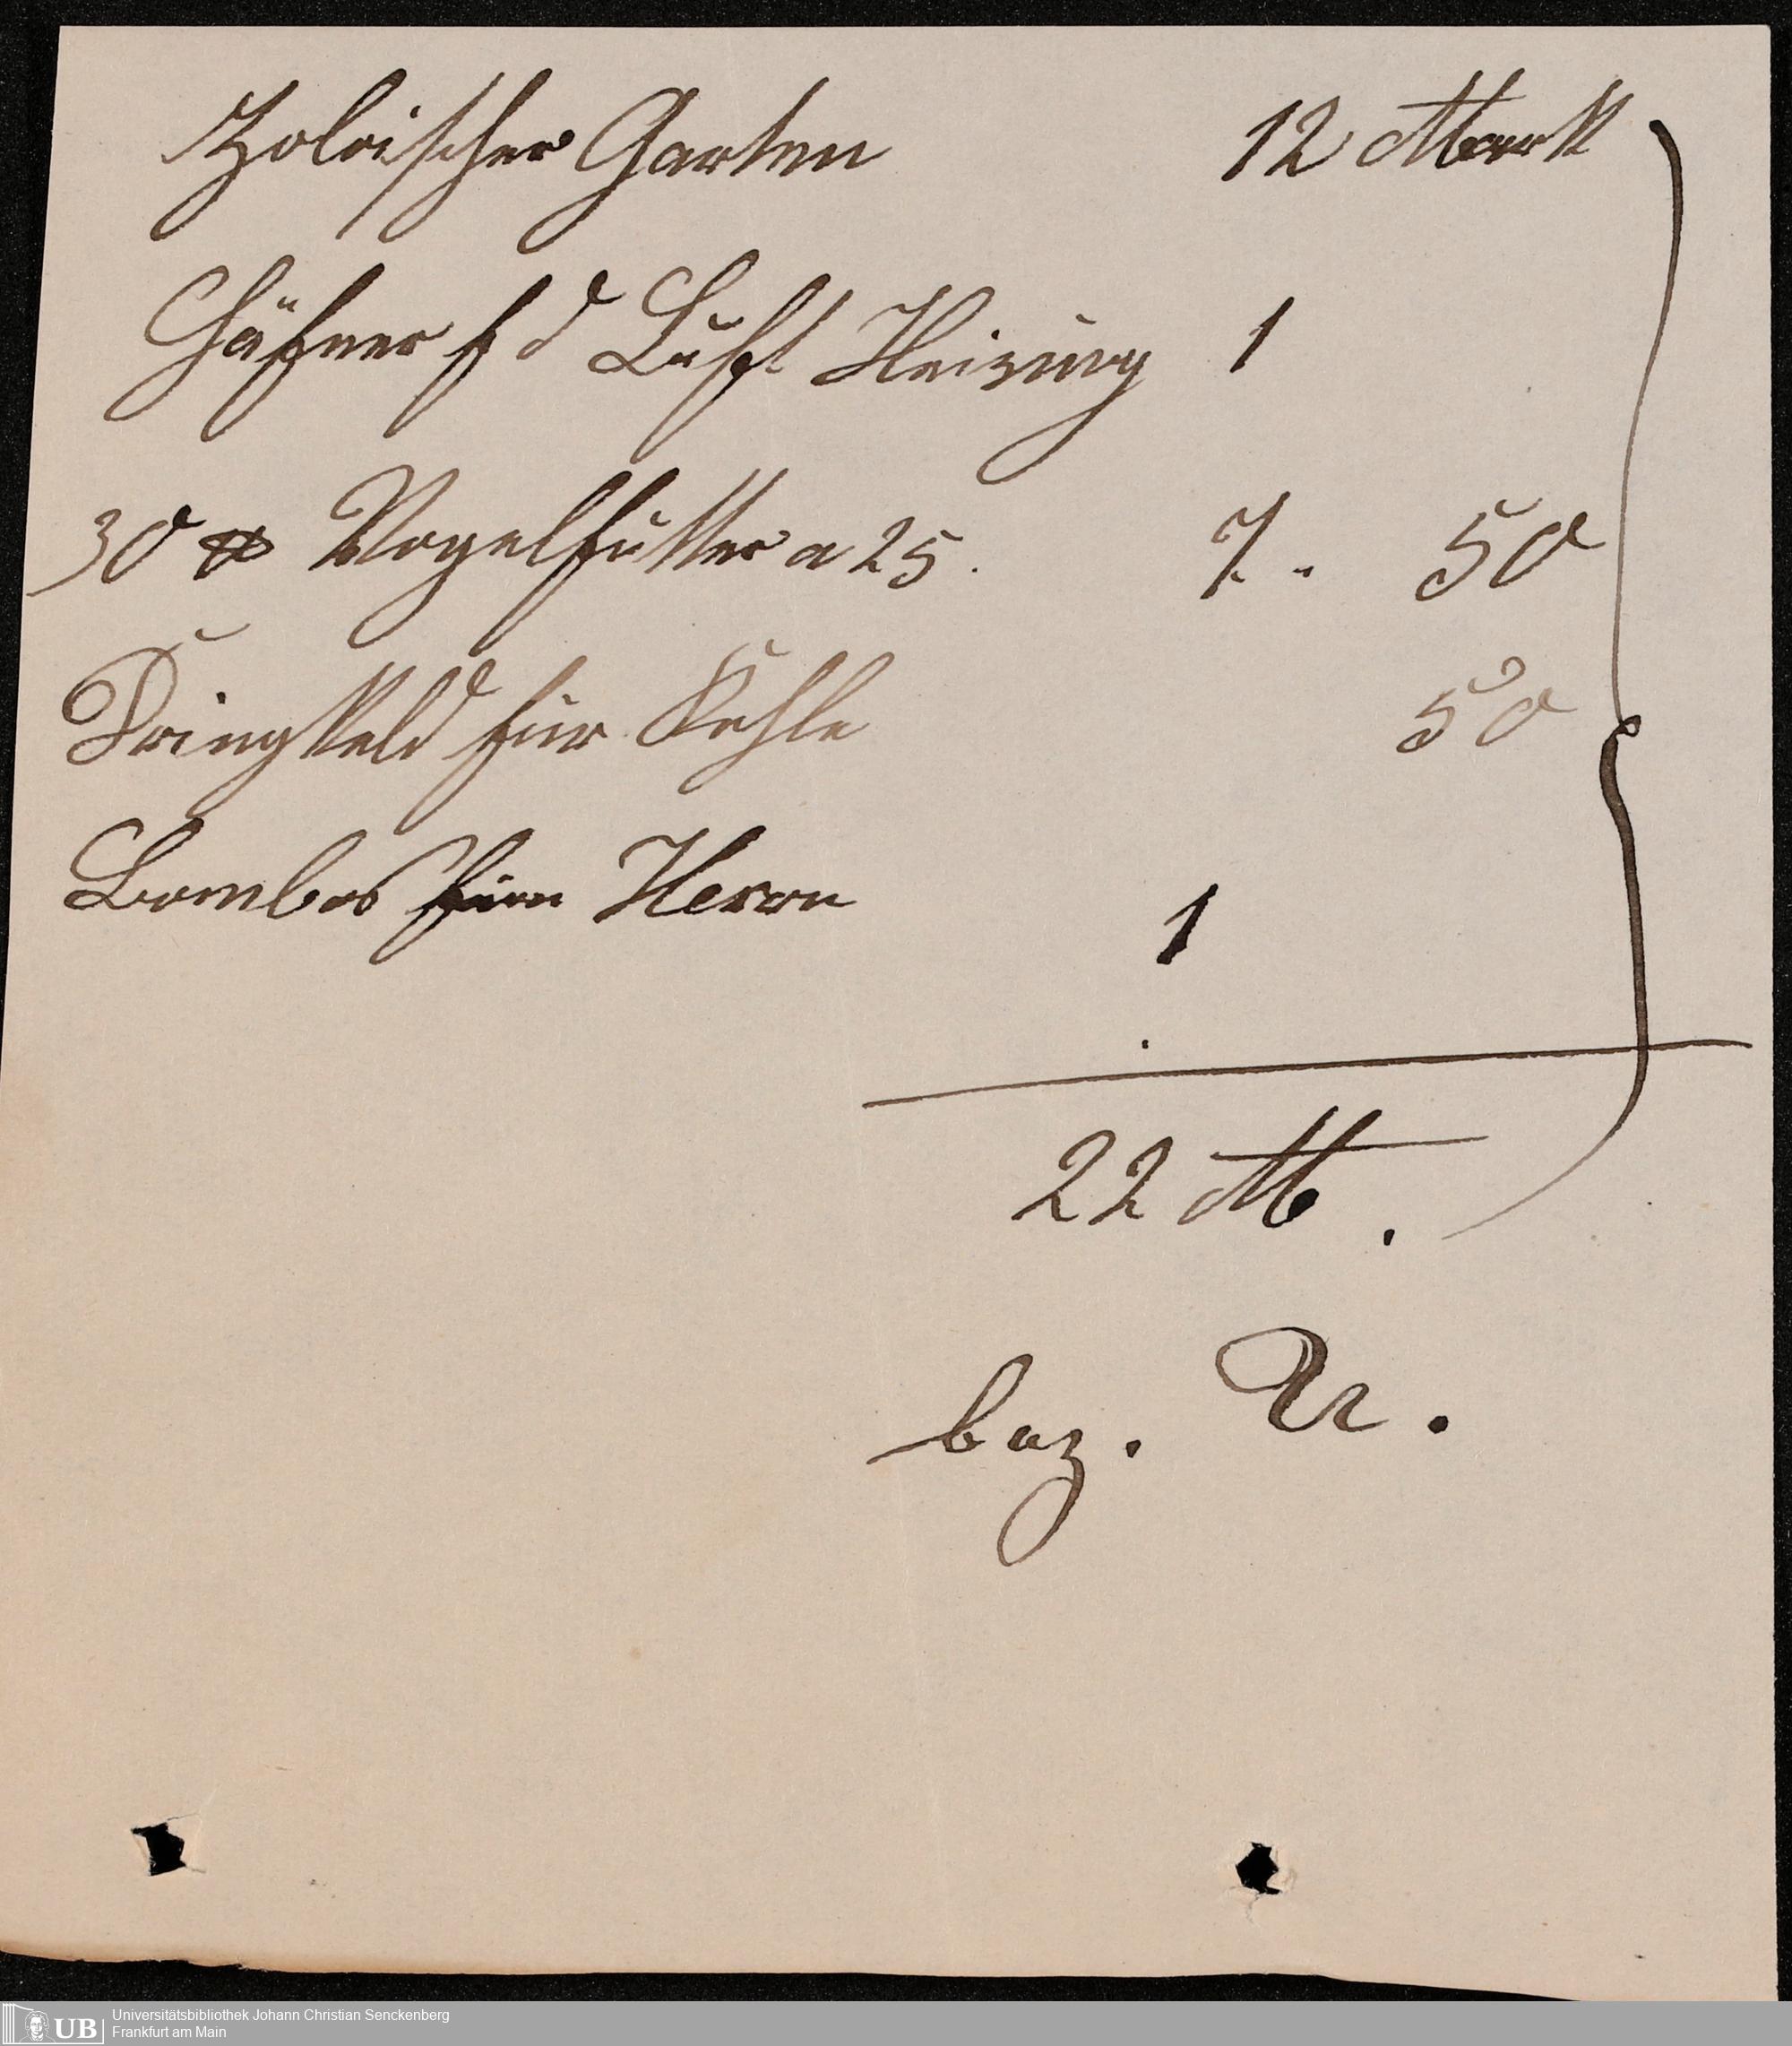 Zoloischer Garten 12 Mark
Häfner f d Luft Heizung 1
30 ℔ Vogelfutter a 25. 7. 50
Tringkeld für Kohle 50
Bombos fürn Herrn 1
22 M.
bez. A.
Universitätsbibliothek Johann Christian Senckenberg
Frankfurt am Main
UB